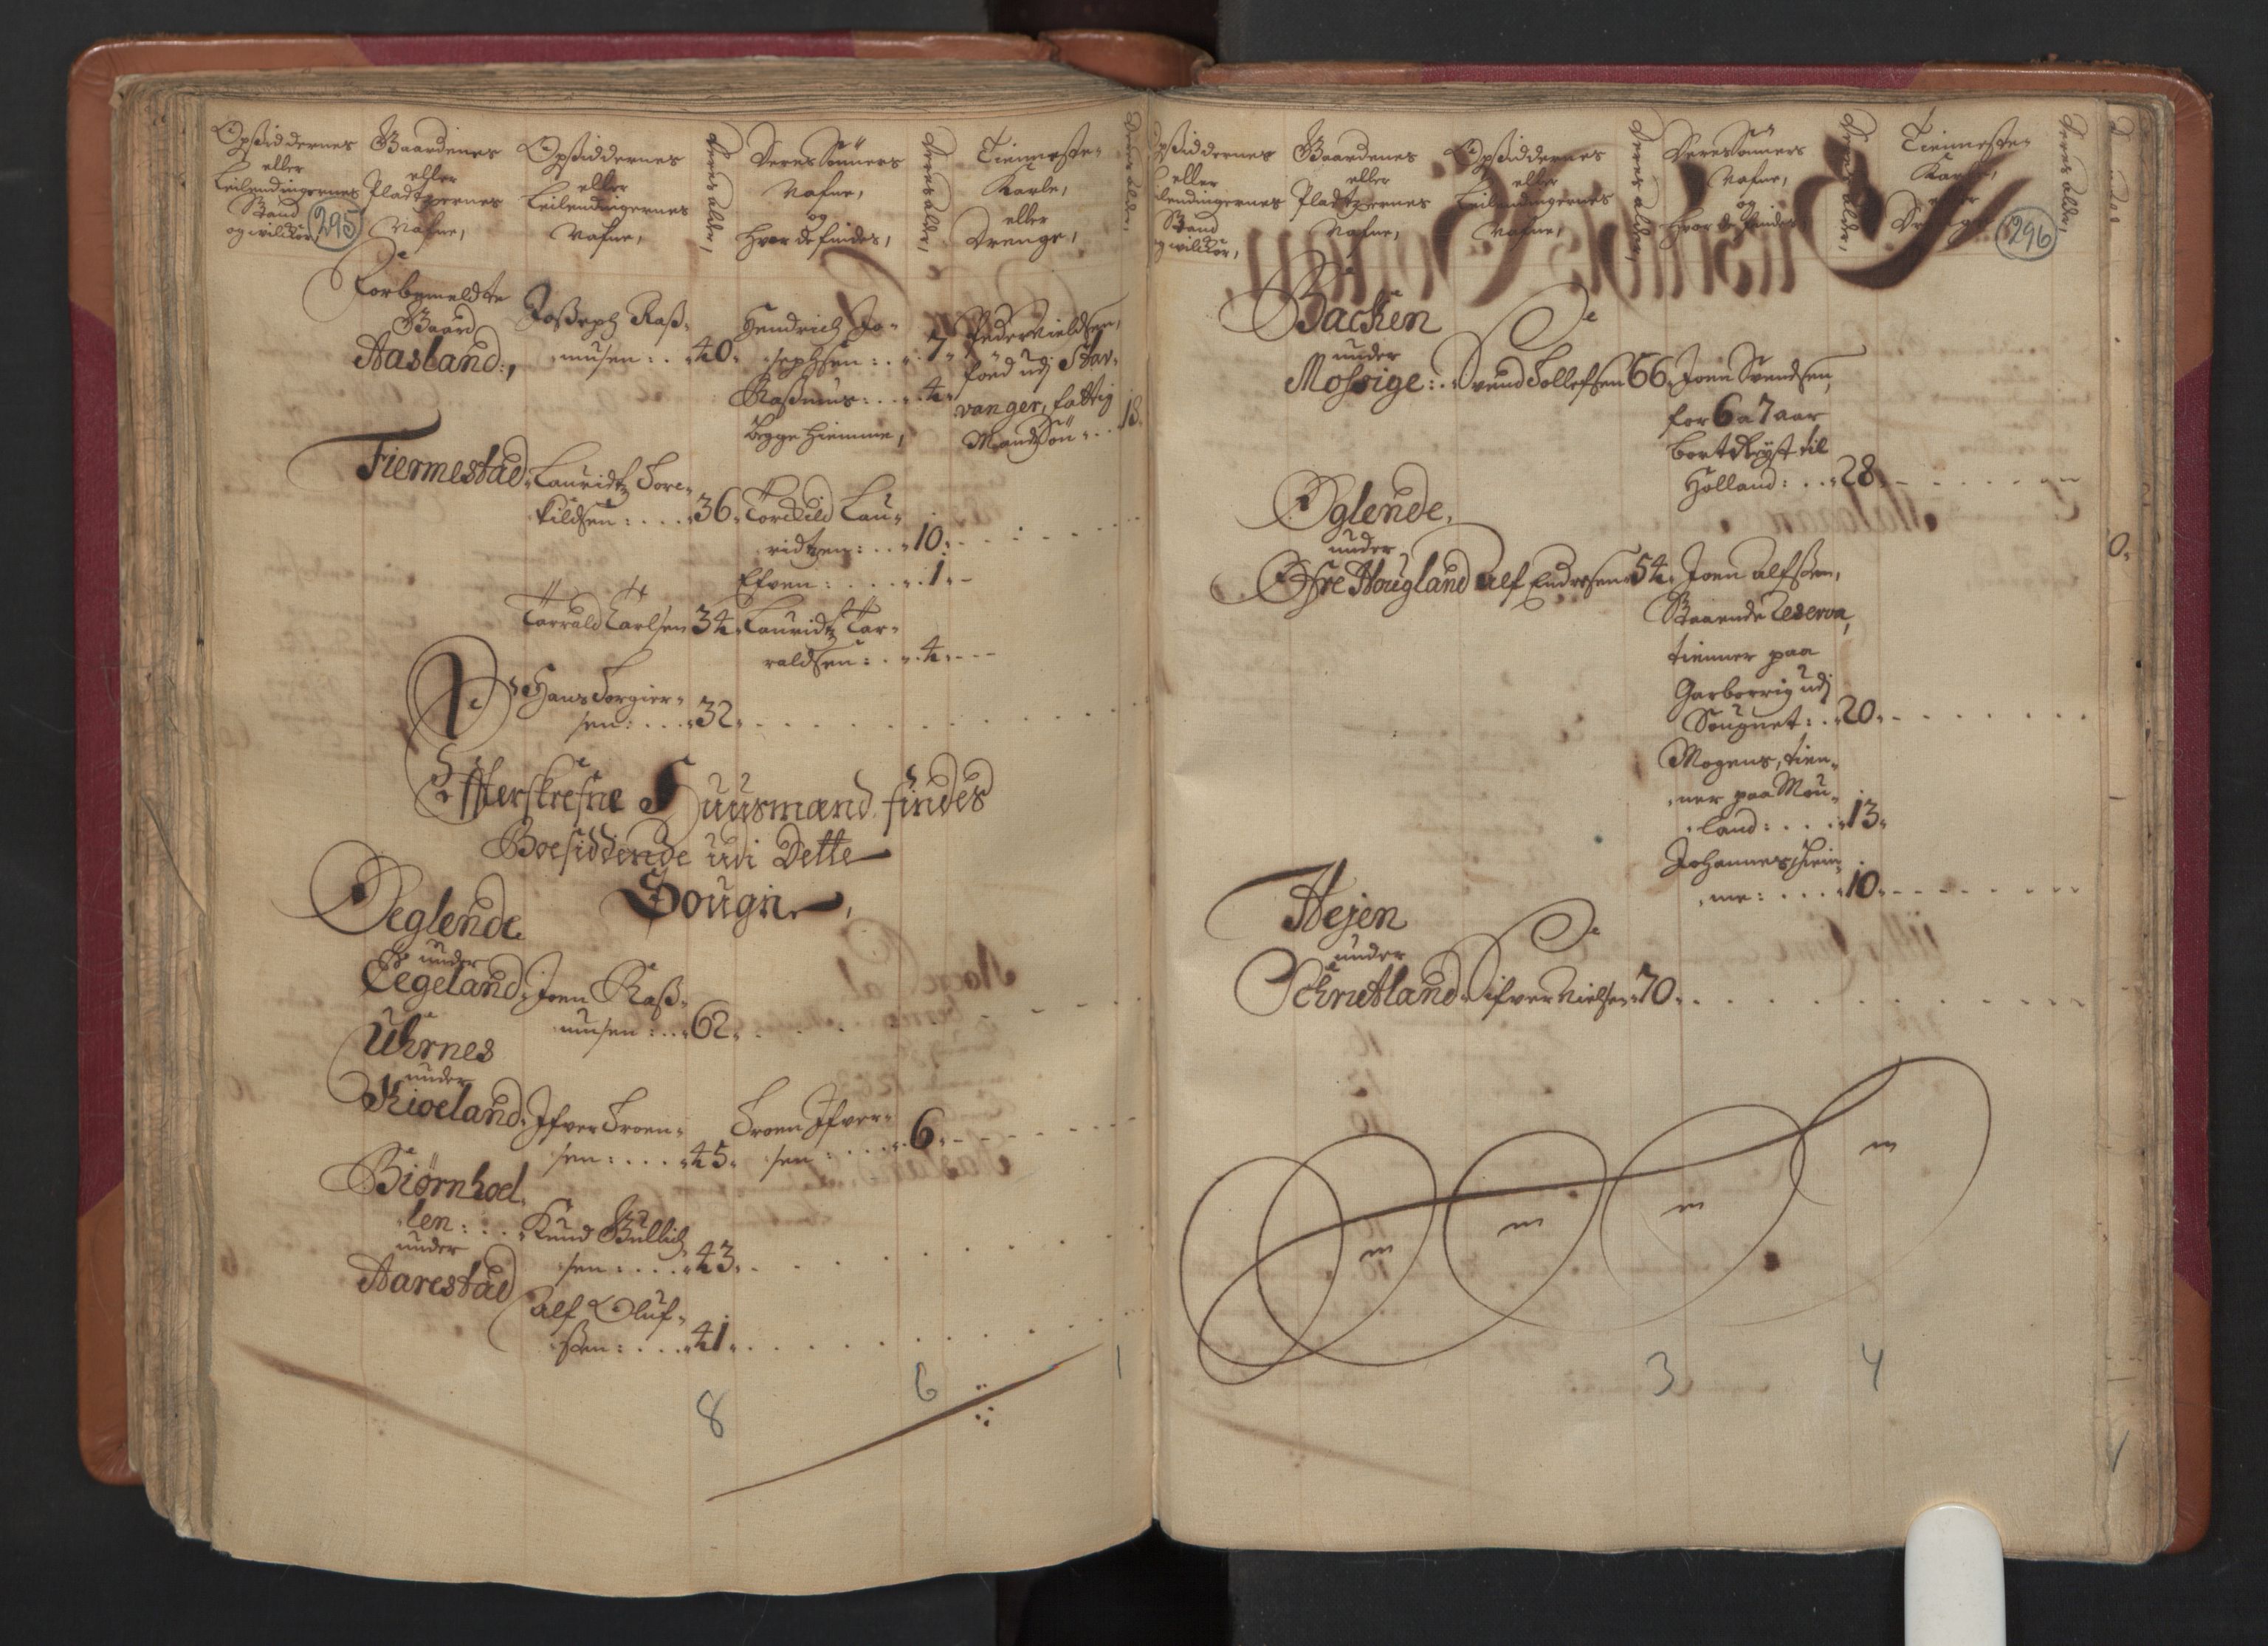 Opsiddernes
eller
Leilendingernes
Stand
og wilckor,
295
Gaardenes
eller
Pladtzernes
Nafne,
Opsiddernes
eller
Leilendingernes
Nafne,
Deres alder,
Deres Sönners
Nafne,
og
Hvor de findes,
Deres alder,
Tienneste-
Karle,
eller
Drenge,
Deres alder,
Forbemeldte
Gaard
Aasland:,
Joseph Rasz-
musen: . . 40.
Hendrich Jo-
sephsen: . . 7.
Rasmus: . . 4.
begge hiemme,
Peder Nieldsen,
föed udj Stav-
vanger, fattig
Mands Sön . . 18.
Fiermestad. Lauridtz Tore-
kildsen: . . . 36. Torckild Lau-
ridtzen: . . 10.
Efven: . . . . 1.
Tarrald Carlsen 34. Lauridtz Tar-
raldsen: . . 4.
Hans Torgier-
sen: . . . 32.
Efterskrefne Huusmænd findes
Boesiddende udi Dette
Sougn,
Oeglende
under
Eegeland. Joen Rasz-
musen: . . 62.
Uhrnes
under
Kioeland. Ifver Troen-
sen: . . . 45.
Troen Ifver-
sen: . . . 6.
Biörnhoel-
len: . . . Knud Gullich-
under
sen: . . . 43.
Aarestad
Alf Oluf-
szen: . . . 41.
8
6
1
Opsiddernes
eller
Leilendingernes
Stand
og wilckor,
Gaardenes
eller
Pladtzernes
Nafne,
Opsiddernes
eller
Leilendingernes
Nafne,
Deres alder,
Deres Sönners
Nafne,
og
Hvor de findes,
Deres alder,
Tienneste-
Karle,
eller
Drenge,
Deres alder,
296
Backen
under
Mossige: . Svend Tollefsen 66. Joen Svendsen,
for 6 a 7 aar
bortReyst til
Holland: . . 28.
Oglende,
under
Öfre Hougland Alf Endresen 54. Joen Alfszen,
Staaende Reserva,
tienner paa
Garborrig udj
Sougnet: . . 20.
Mogens, tien-
ner paa Mou-
land: . . . 13.
Johannes, hiem-
me: . . . . 10.
Hejen
under
Schrutland. Sifver Nielsen 70.
3
4